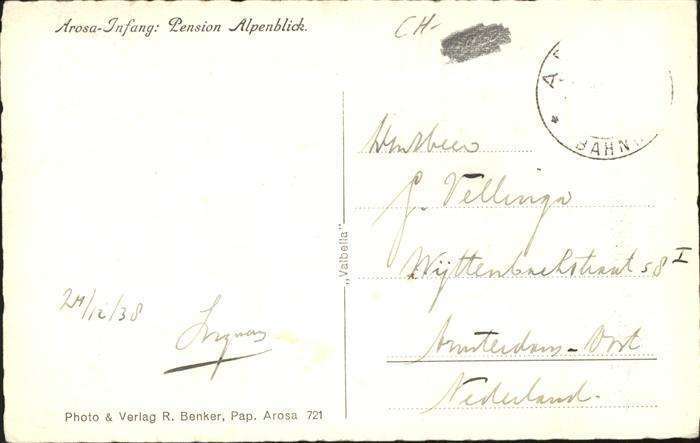 Arosa-Infang: Pension Alpenblick.
CH-
A
BAHN
"Valbella"
J. Vellinga
Wijttenbachstraat 58 I
Amsterdam-Oost
Nederland.
24/12/38
Photo & Verlag R. Benker, Pap. Arosa 721